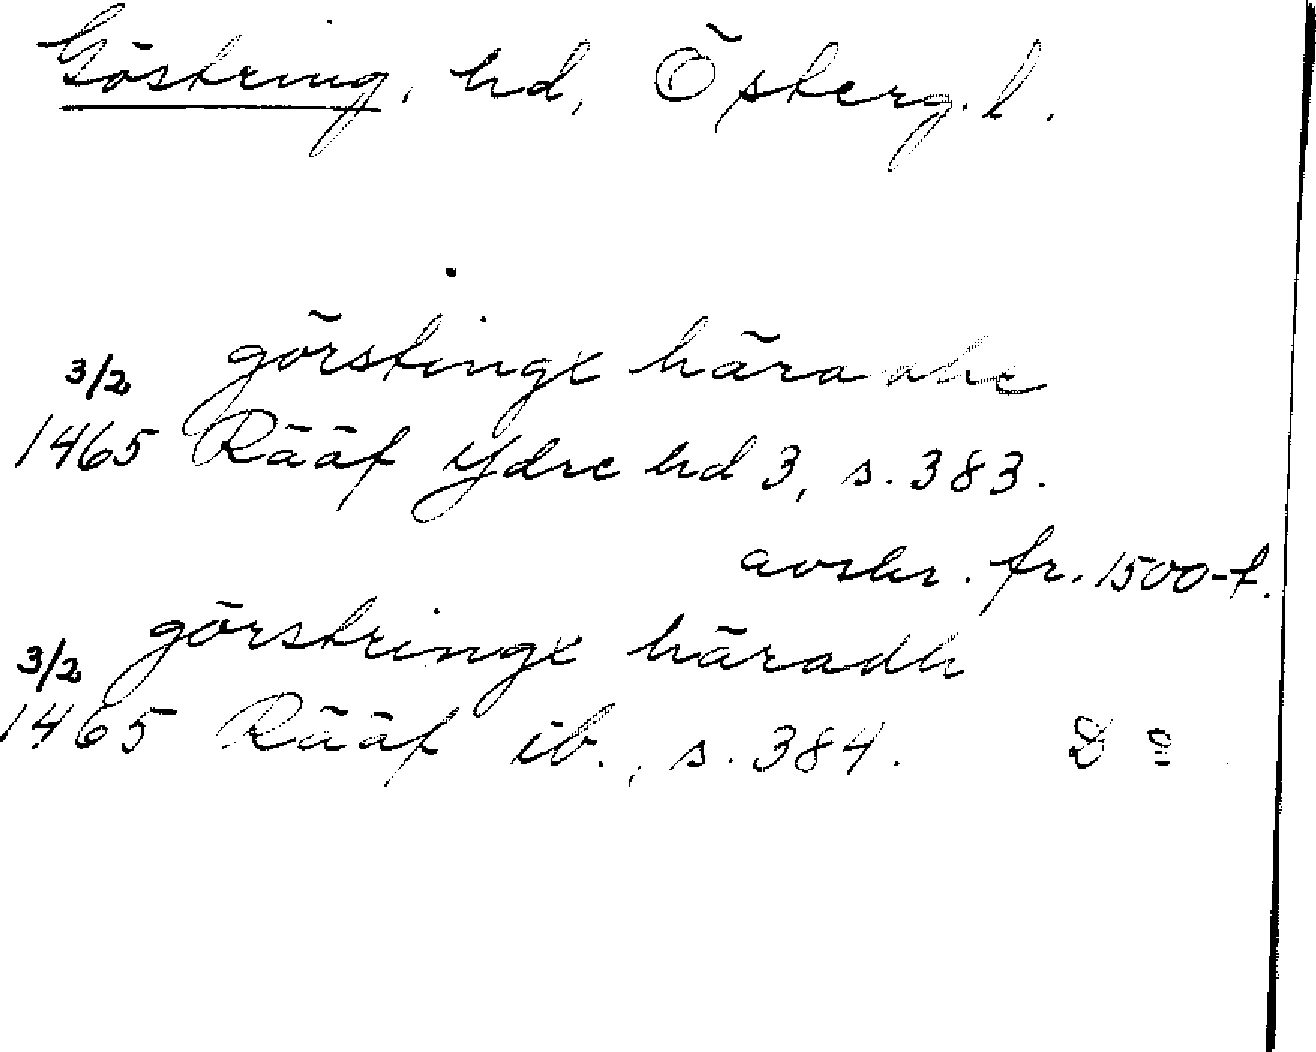 Göstring, hd, Österg. l.
görstinge häradhe
3/2
1465 Rääf Ydre hd 3, s. 383.
avskr. fr. 1500-t.
görstringe häradh
3/2
1465 Rääf ib., s. 384.